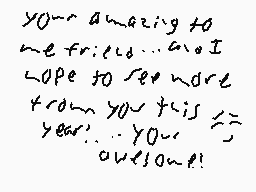 your amazing to
me friend... and I
hope to see more
from you this
year!... your
awesome!